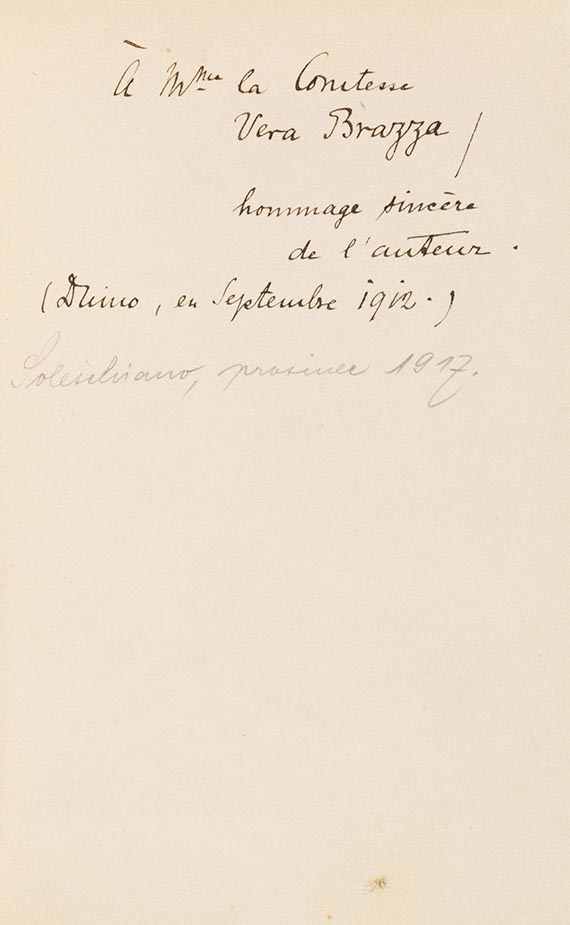 À Mme la Comtesse
Vera Brazza /
hommage sincère
de l'auteur.
(Duino, en Septembre 1912.)
Soleschiano, prosinec 1917.